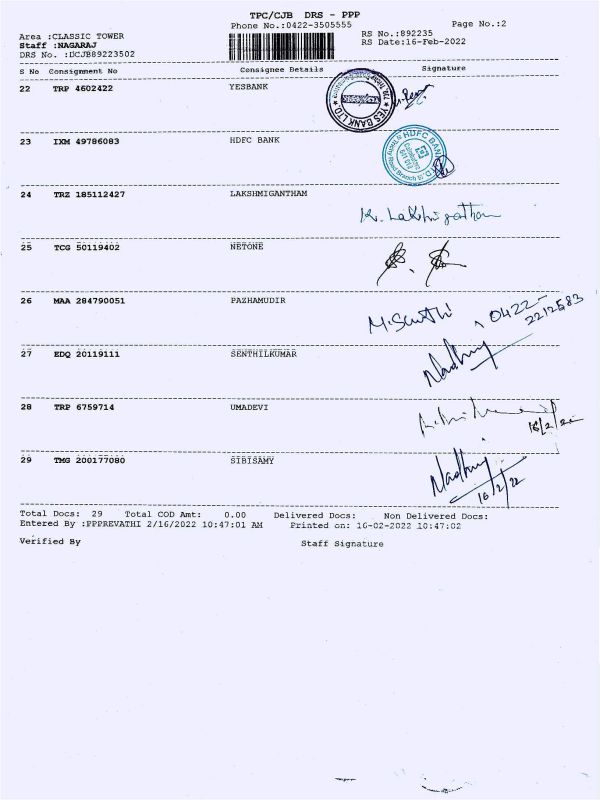 TPC/CJB DRS - PPP
Phone No.:0422-3505555
Page No.:2
Area :CLASSIC TOWER
RS No.:892235
Staff :NAGARAJ
RS Date:16-Feb-2022
DRS No. :DCJB89223502
S No Consignment No Consignee Details Signature
22 TRP 4602422 YESBANK
YES BANK LTD.
23 IXM 49786083 HDFC BANK
HDFC BANK
24 TRZ 185112427 LAKSHMIGANTHAM
K. Lakshmigantham
25 TCG 50119402 NETONE
26 MAA 284790051 PAZHAMUDIR
M. Santhi 0422-
2212583
27 EDQ 20119111 SENTHILKUMAR
28 TRP 6759714 UMADEVI
16/2/22
29 TMG 200177080 SIBISAMY
16/2/22
Total Docs: 29 Total COD Amt: 0.00 Delivered Docs: Non Delivered Docs:
Entered By :PPPREVATHI 2/16/2022 10:47:01 AM Printed on: 16-02-2022 10:47:02
Verified By Staff Signature